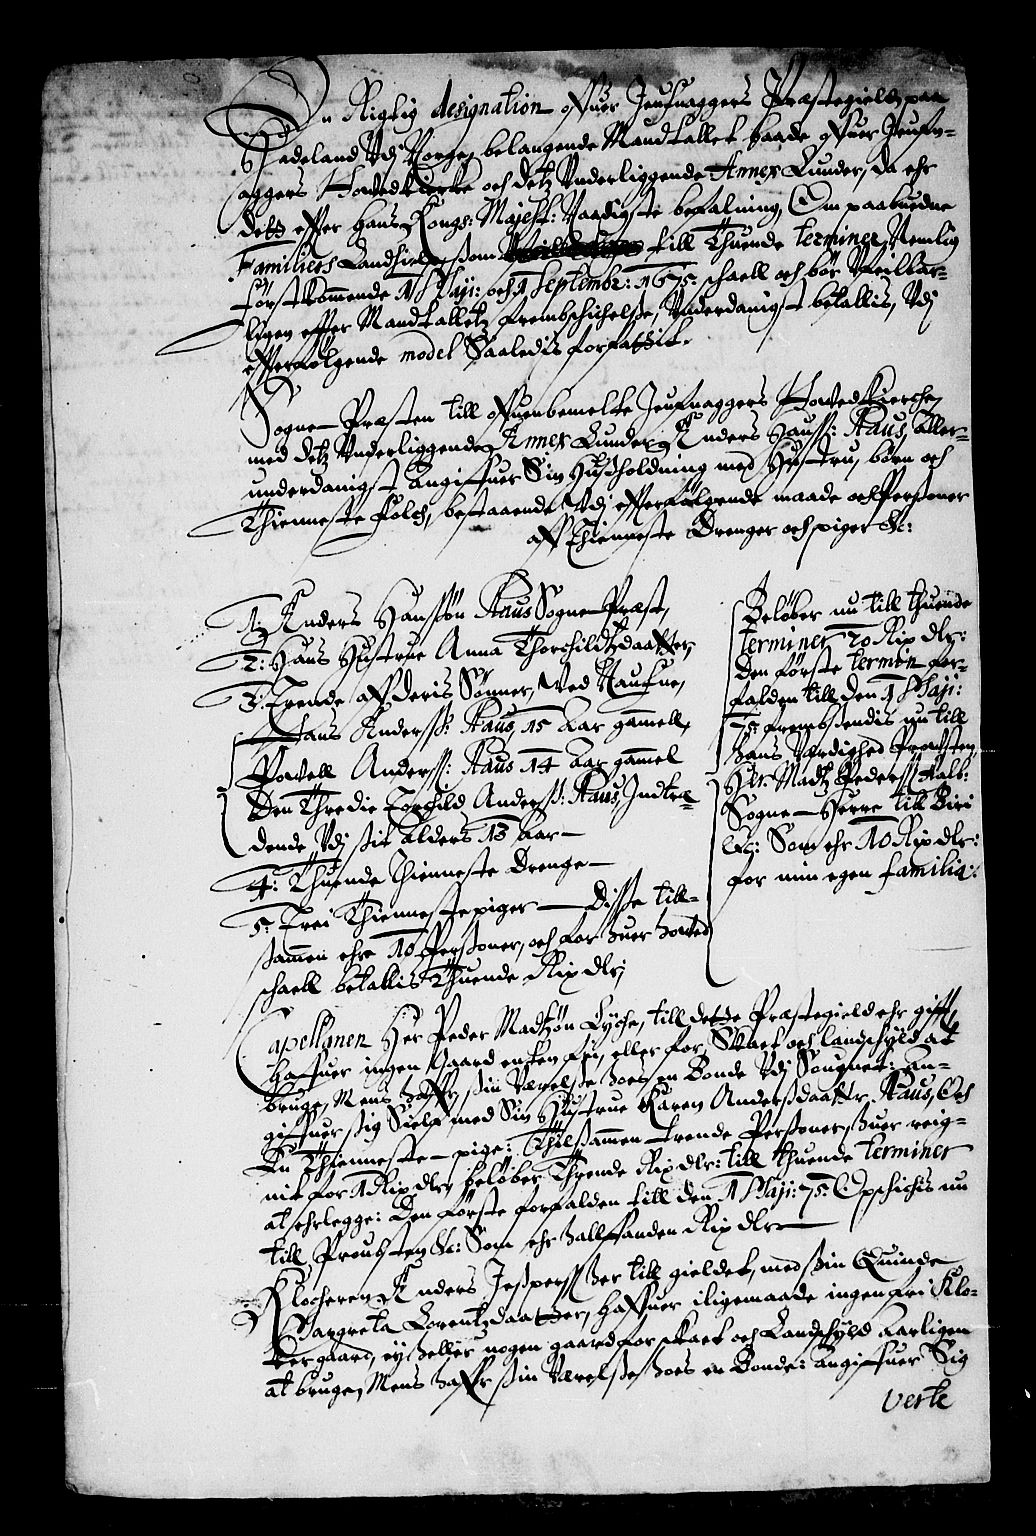 En Rigtig designation ofuer Jeufnaggers Præstegield paa
Hadeland Udj Norge, belangende Mandtallet baade ofuer Jeufn-
aggers Hovedkircke och detz Underliggende Annex Lunder, da ehr
dete effter Hans Kongs: Majest: Naadigste befalning, Om paabudne
Familiers Landhielp, som till Thuende terminer, Nemlig
først kommende 1 Maji: och 1 Septembr: 1675: schaell och bør Veilbar-
ligen effter Mandtalletz frembschichelsse, Underdanigst betallis, Udj
effterfølgende model Saaledis forfattit.
Sogne Præsten till ofuenbemelte Jeufnaggers Hovedkierche,
med detz Underliggende Annex Lunder, Anders Hanss: Raus, aller-
underdanigst Angifuer Sin Hussholdning med Hustru, børn och
Thienneste folch, bestaaende Udj effterfølgende maade och Personer
aff Thienneste Drenger och piger &c:
1: Anders Hanssøn Raus Sogne Præst,
2: Hans Hustrue Anna Thorchildtzdaatter,
3: Trende aff deris Sønner, Ved Naufne,
Hans Anderss: Raus, 15 Aar gammell,
Povell Anderss: Raus 14 Aar gammel
Den Thredie Torchild Anderss: Raus, Indtre-
dende Udj sit alders 13 Aar
4: Thuende Thienneste Drenge
5: Trei Thienneste piger Disse till-
sammen ehre 10 Personer, och for huer hoved
schaell betallis Thuende Rix dlr;
Beløber nu till thuende
terminer 20 Rix dlr:
den første termin for-
falden till den 1 Maji:
75: frembsendis nu till
hans Verdighed Provsten
Hr: Madtz Pederss
Sogne Herre till Biri
&c: Som ehr 10 Rix dlr:
for min egen familia:
Capellanen Her Peder Madtzøn Lyche, till dette Præstegield ehr gifft,
Hafuer ingen Gaard enten fri, eller for Skatt och landschyld at
bruge, Mens haffr sin Værelsse hoes en Bonde Udj Sougnet: An-
gifuer sig Sielf med Sin Hustrue Karen Andersdaatter Raus, Och
En Thienneste pige: Thilsammen trende Personer, huer reig-
nit for 1 Rix dlr, beløber Thrende Rix dlr: till thuende terminer
at ehrlegge: Den første forfalden till den 1 Maji: 75: Opschichis nu
till Proufsten &c: Som ehr halfanden Rix dlr
Klocheren Anders Jesperss her till gieldet, med sin Quinde
Margreta Lorentzdaatter, Haffuer iligemaade ingen fri Klo-
kergaard, ey heller nogen gaard for skatt och Landschyld Aarligen
at bruge, Mens haffr sin Værelsse hoes en Bonde: angifuer Sig
Verte